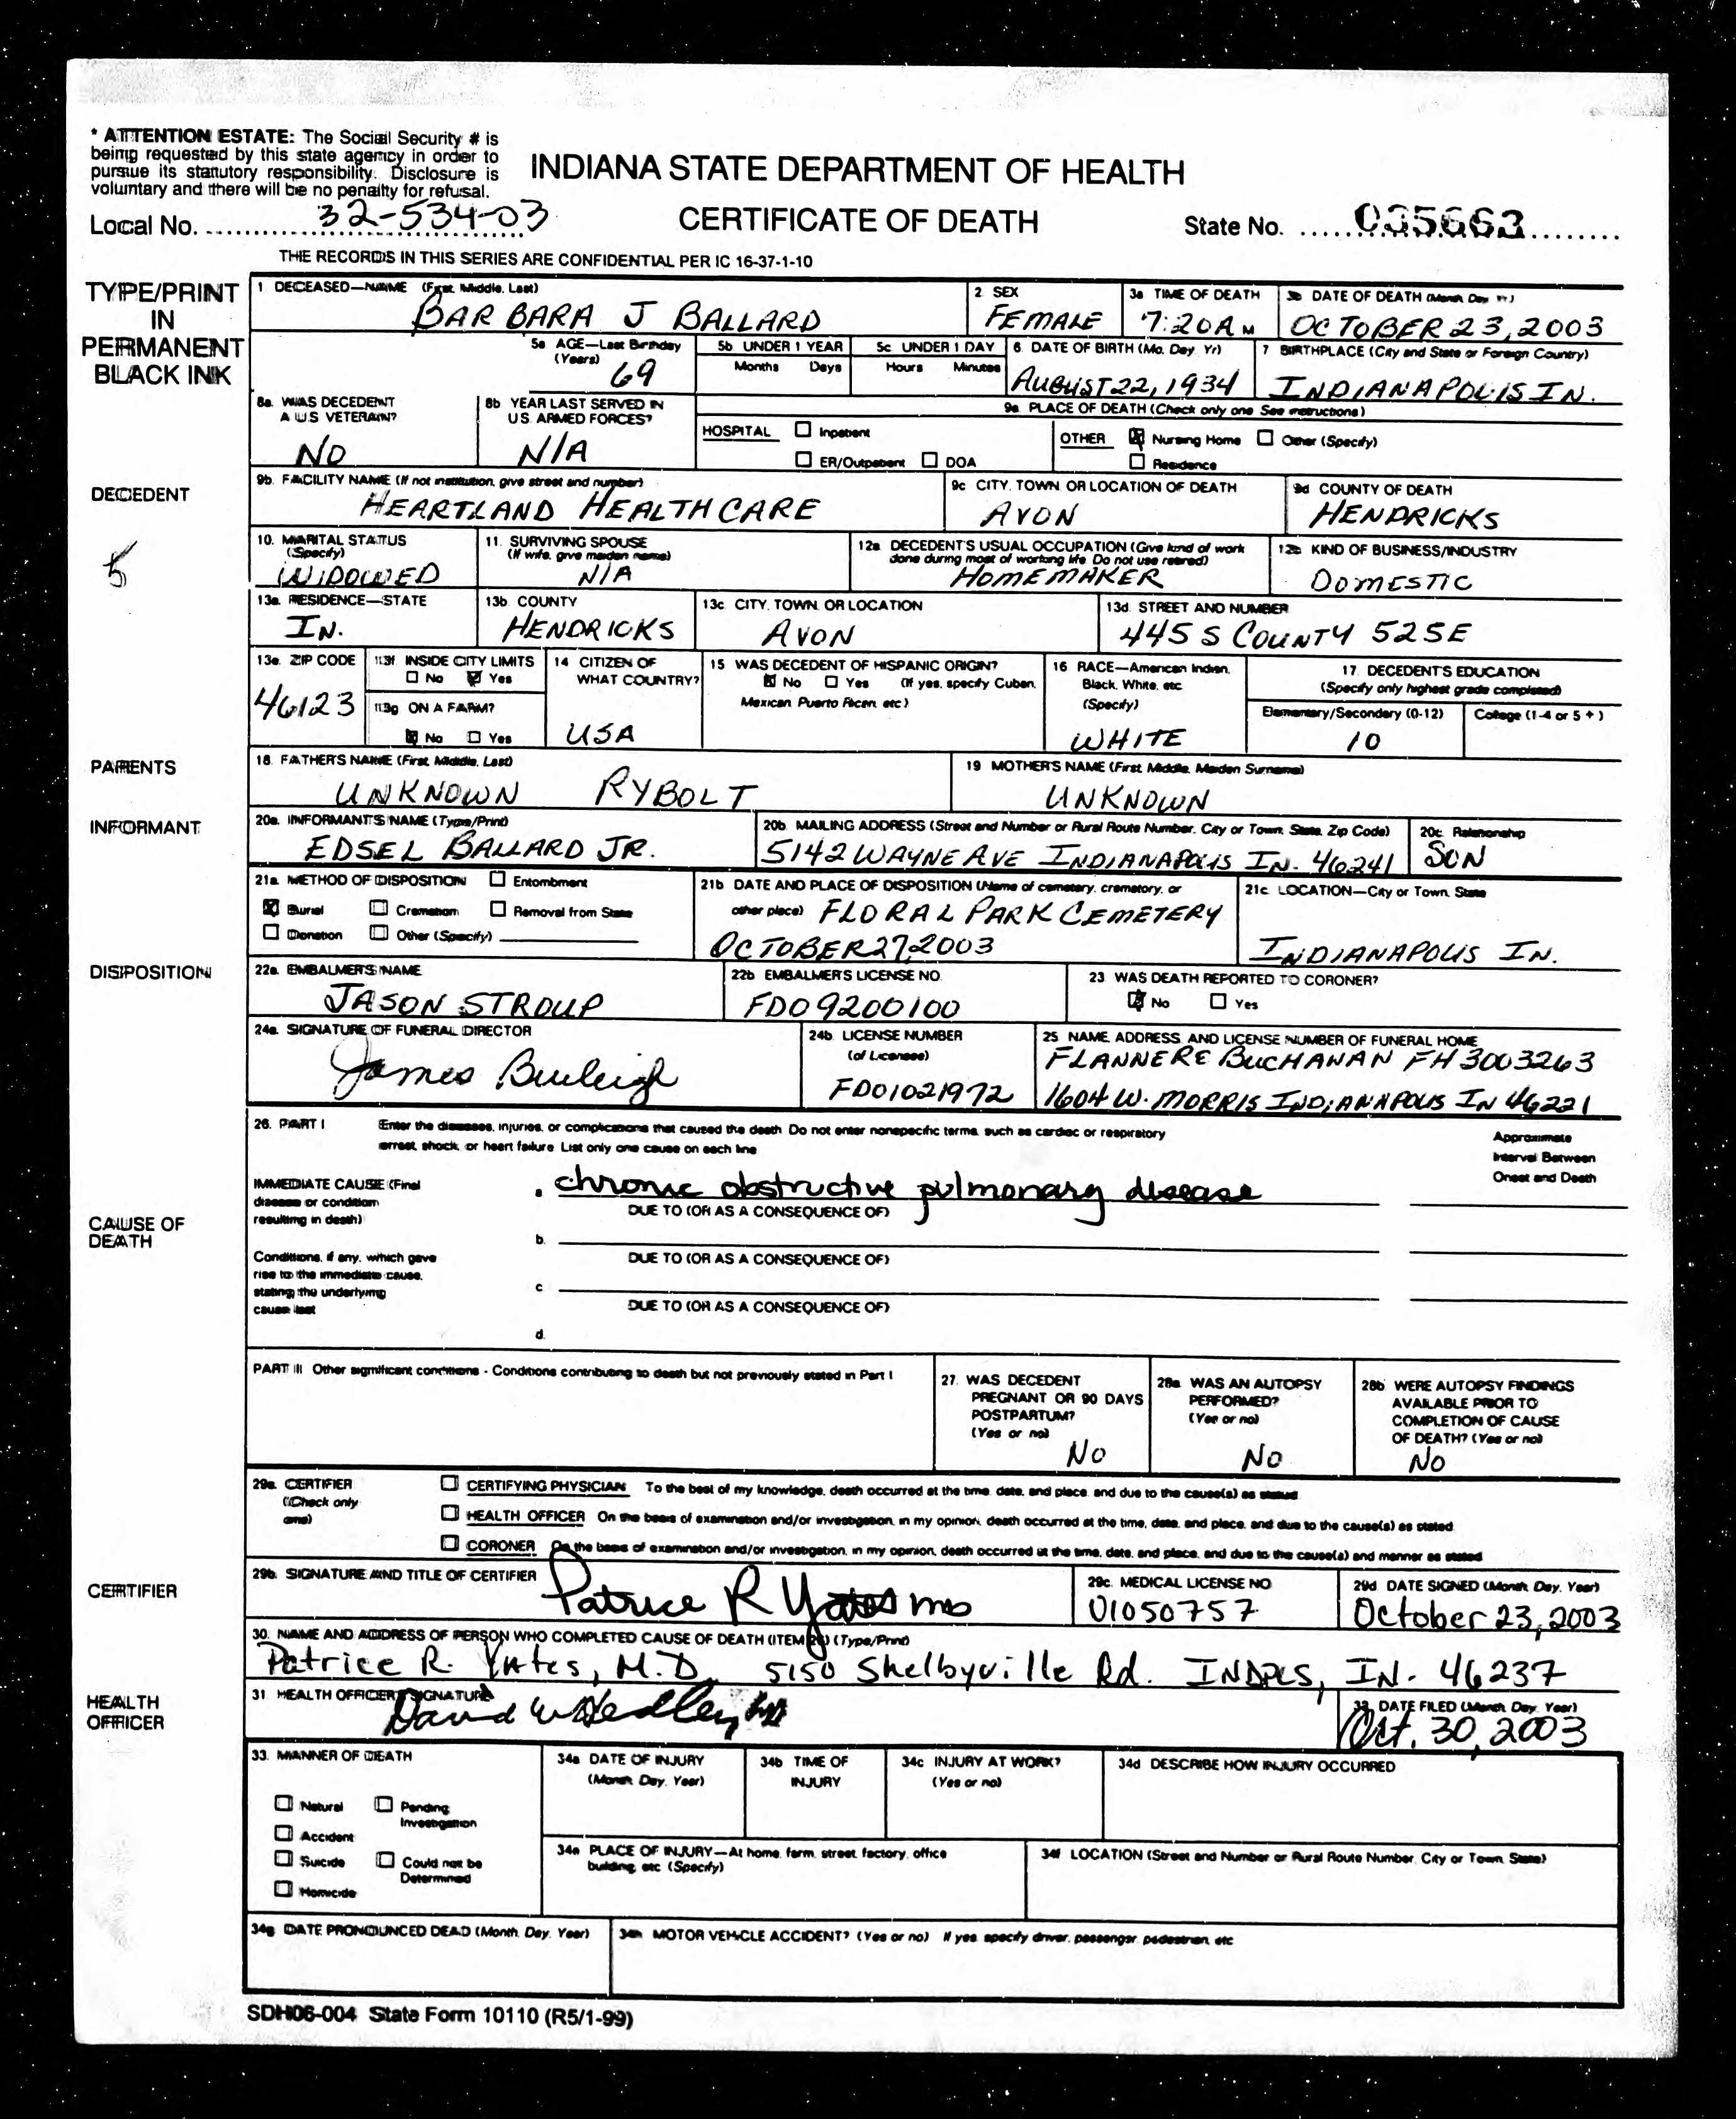 * ATTENTION ESTATE: The Social Security # is
being requested by this state agency in order to
pursue its statutory responsibility. Disclosure is
voluntary and there will be no penalty for refusal.
INDIANA STATE DEPARTMENT OF HEALTH
Local No. 32-534-03
CERTIFICATE OF DEATH
State No. 035663
THE RECORDS IN THIS SERIES ARE CONFIDENTIAL PER IC 16-37-1-10
TYPE/PRINT
IN
PERMANENT
BLACK INK
1 DECEASED—NAME (First, Middle, Last)
BARBARA J BALLARD
2 SEX
FEMALE
3a TIME OF DEATH
7:20A M
3b DATE OF DEATH (Month Day Yr)
OCTOBER 23, 2003
5a AGE—Last Birthday
(Years)
69
5b UNDER 1 YEAR
Months Days
5c UNDER 1 DAY
Hours Minutes
6 DATE OF BIRTH (Mo, Day, Yr)
AUGUST 22, 1934
7 BIRTHPLACE (City and State or Foreign Country)
INDIANAPOLIS IN.
8a. WAS DECEDENT
A U.S VETERAN?
NO
8b YEAR LAST SERVED IN
US ARMED FORCES?
N/A
9a PLACE OF DEATH (Check only one See instructions)
HOSPITAL Inpatient
ER/Outpatient DOA
OTHER Nursing Home Other (Specify)
Residence
DECEDENT
9b. FACILITY NAME (If not institution, give street and number)
HEARTLAND HEALTHCARE
9c CITY, TOWN, OR LOCATION OF DEATH
AVON
9d COUNTY OF DEATH
HENDRICKS
10. MARITAL STATUS
(Specify)
WIDOWED
11. SURVIVING SPOUSE
(If wife, give maiden name)
N/A
12a DECEDENT'S USUAL OCCUPATION (Give kind of work
done during most of working life. Do not use retired)
HOMEMAKER
12b KIND OF BUSINESS/INDUSTRY
DOMESTIC
13a. RESIDENCE—STATE
IN.
13b COUNTY
HENDRICKS
13c. CITY, TOWN, OR LOCATION
AVON
13d. STREET AND NUMBER
445 S COUNTY 525E
13e. ZIP CODE
46123
13f INSIDE CITY LIMITS
No Yes
13g ON A FARM?
No Yes
14 CITIZEN OF
WHAT COUNTRY?
USA
15 WAS DECEDENT OF HISPANIC ORIGIN?
No Yes (If yes, specify Cuban,
Mexican, Puerto Rican, etc)
16 RACE—American Indian,
Black, White, etc
(Specify)
WHITE
17. DECEDENT'S EDUCATION
(Specify only highest grade completed)
Elementary/Secondary (0-12) College (1-4 or 5 + )
10
PARENTS
18. FATHER'S NAME (First, Middle, Last)
UNKNOWN RYBOLT
19 MOTHER'S NAME (First, Middle, Maiden Surname)
UNKNOWN
INFORMANT
20a. INFORMANT'S NAME (Type/Print)
EDSEL BALLARD JR.
20b. MAILING ADDRESS (Street and Number or Rural Route Number, City or Town, State, Zip Code)
5142 WAYNE AVE INDIANAPOLIS IN. 46241
20c Relationship
SON
21a. METHOD OF DISPOSITION Entombment
Burial Cremation Removal from State
Donation Other (Specify)
21b DATE AND PLACE OF DISPOSITION (Name of cemetery, crematory, or
other place) FLORAL PARK CEMETERY
OCTOBER 27, 2003
21c. LOCATION—City or Town, State
INDIANAPOLIS IN.
DISPOSITION
22a. EMBALMER'S NAME
JASON STROUP
22b EMBALMER'S LICENSE NO.
FD09200100
23 WAS DEATH REPORTED TO CORONER?
No Yes
24a. SIGNATURE OF FUNERAL DIRECTOR
James Burleigh
24b. LICENSE NUMBER
(of Licensee)
FD01021972
25 NAME, ADDRESS, AND LICENSE NUMBER OF FUNERAL HOME
FLANNERE BUCHANAN FH 3003263
1604 W. MORRIS INDIANAPOLIS IN 46221
26. PART I Enter the diseases, injuries, or complications that caused the death Do not enter nonspecific terms, such as cardiac or respiratory
arrest, shock, or heart failure List only one cause on each line
Approximate
Interval Between
Onset and Death
CAUSE OF
DEATH
IMMEDIATE CAUSE (Final
disease or condition
resulting in death)
a. chronic obstructive pulmonary disease
DUE TO (OR AS A CONSEQUENCE OF)
b.
Conditions, if any, which gave
rise to the immediate cause,
stating the underlying
cause last
DUE TO (OR AS A CONSEQUENCE OF)
c
DUE TO (OR AS A CONSEQUENCE OF)
d.
PART II Other significant conditions - Conditions contributing to death but not previously stated in Part I
27. WAS DECEDENT
PREGNANT OR 90 DAYS
POSTPARTUM?
(Yes or no)
NO
28a WAS AN AUTOPSY
PERFORMED?
(Yes or no)
NO
28b WERE AUTOPSY FINDINGS
AVAILABLE PRIOR TO
COMPLETION OF CAUSE
OF DEATH? (Yes or no)
NO
29a. CERTIFIER
(Check only
one)
CERTIFYING PHYSICIAN To the best of my knowledge, death occurred at the time, date, and place, and due to the cause(s) as stated
HEALTH OFFICER On the basis of examination and/or investigation, in my opinion, death occurred at the time, date, and place, and due to the cause(s) as stated
CORONER On the basis of examination and/or investigation, in my opinion, death occurred at the time, date, and place, and due to the cause(s) and manner as stated
CERTIFIER
29b. SIGNATURE AND TITLE OF CERTIFIER
Patrice R Yates MD
29c. MEDICAL LICENSE NO
01050757
29d. DATE SIGNED (Month, Day, Year)
October 23, 2003
30. NAME AND ADDRESS OF PERSON WHO COMPLETED CAUSE OF DEATH (ITEM 26) (Type/Print)
Patrice R. Yates, M.D. 5150 Shelbyville Rd. INDPLS, IN. 46237
HEALTH
OFFICER
31. HEALTH OFFICER'S SIGNATURE
David W Hedley, MD
32. DATE FILED (Month, Day, Year)
Oct. 30, 2003
33. MANNER OF DEATH
Natural Pending
Investigation
Accident
Suicide Could not be
Determined
Homicide
34a DATE OF INJURY
(Month, Day, Year)
34b TIME OF
INJURY
34c INJURY AT WORK?
(Yes or no)
34d DESCRIBE HOW INJURY OCCURRED
34e PLACE OF INJURY—At home, farm, street, factory, office
building, etc (Specify)
34f LOCATION (Street and Number or Rural Route Number, City or Town, State)
34g DATE PRONOUNCED DEAD (Month, Day, Year)
34h MOTOR VEHICLE ACCIDENT? (Yes or no) If yes, specify driver, passenger, pedestrian, etc
SDH06-004 State Form 10110 (R5/1-99)